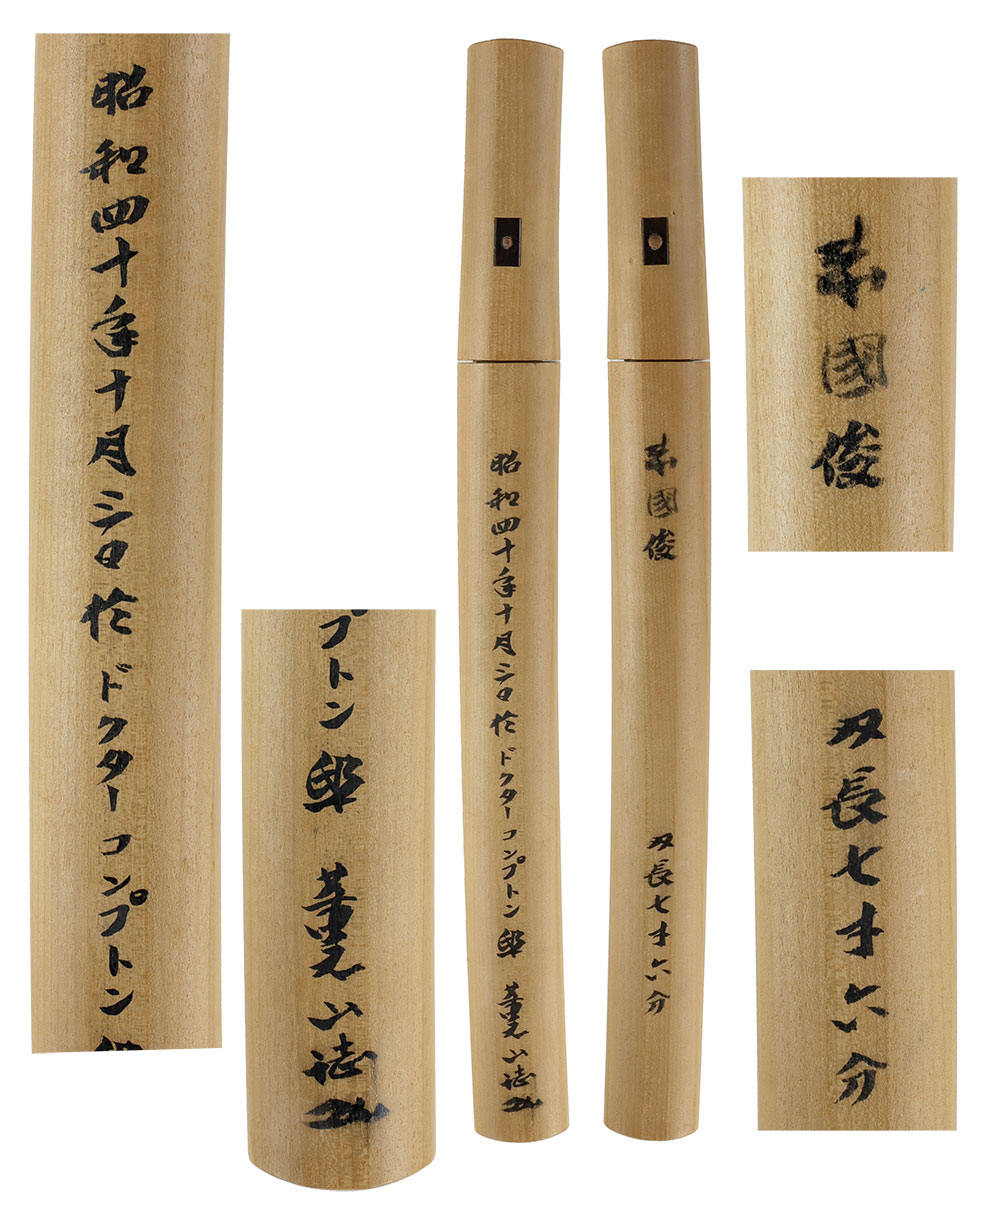 昭和四十年十月三日於ドクターコンプトン
プトン邸 薫山誌
昭和四十年十月三日於ドクターコンプトン邸 薫山誌
来國俊 刃長七寸六分
来國俊
刃長七寸六分